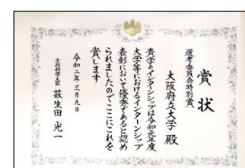 賞状
選考委員会特別賞
大阪府立大学 殿
貴学のインターンシップは令和元年度
大学等におけるインターンシップ
表彰において優秀であると認め
られましたのでここにこれを
賞します
令和二年三月九日
文部科学大臣 萩生田光一